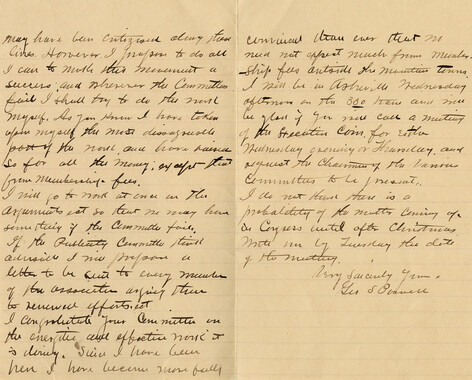 may have been criticised along these
lines. However, I propose to do all
I can to make this movement a
success, and wherever the Committees
fail I shall try to do the work
myself. As you know I have taken
upon myself the most disagreeable
part of the work, and have raised
so far all the money, except that
from membership fees.
I will go to work at once on the
arguments so that we may have
something if the Committee fails.
If the Publicity Committee think
advisable I will prepare a
letter to be sent to every member
of the association urging them
to renewed efforts.
I congratulate your Committee on
the energetic and effective work it
is doing. Since I have been
here I have become more fully
convinced than ever that we
need not expect much from member-
ship fees outside the mountain towns.
I will be in Asheville Wednesday
afternoon on the 300 train and will
be glad if you will call a meeting
of the Executive Com. for either
Wednesday evening or Thursday, and
request the Chairmen of the various
Committees to be present.
I do not think there is a
probability of the matter coming up
in Congress until after Christmas.
Write me by Tuesday the date
of the meeting.
Very Sincerely Yours,
Geo S Powell